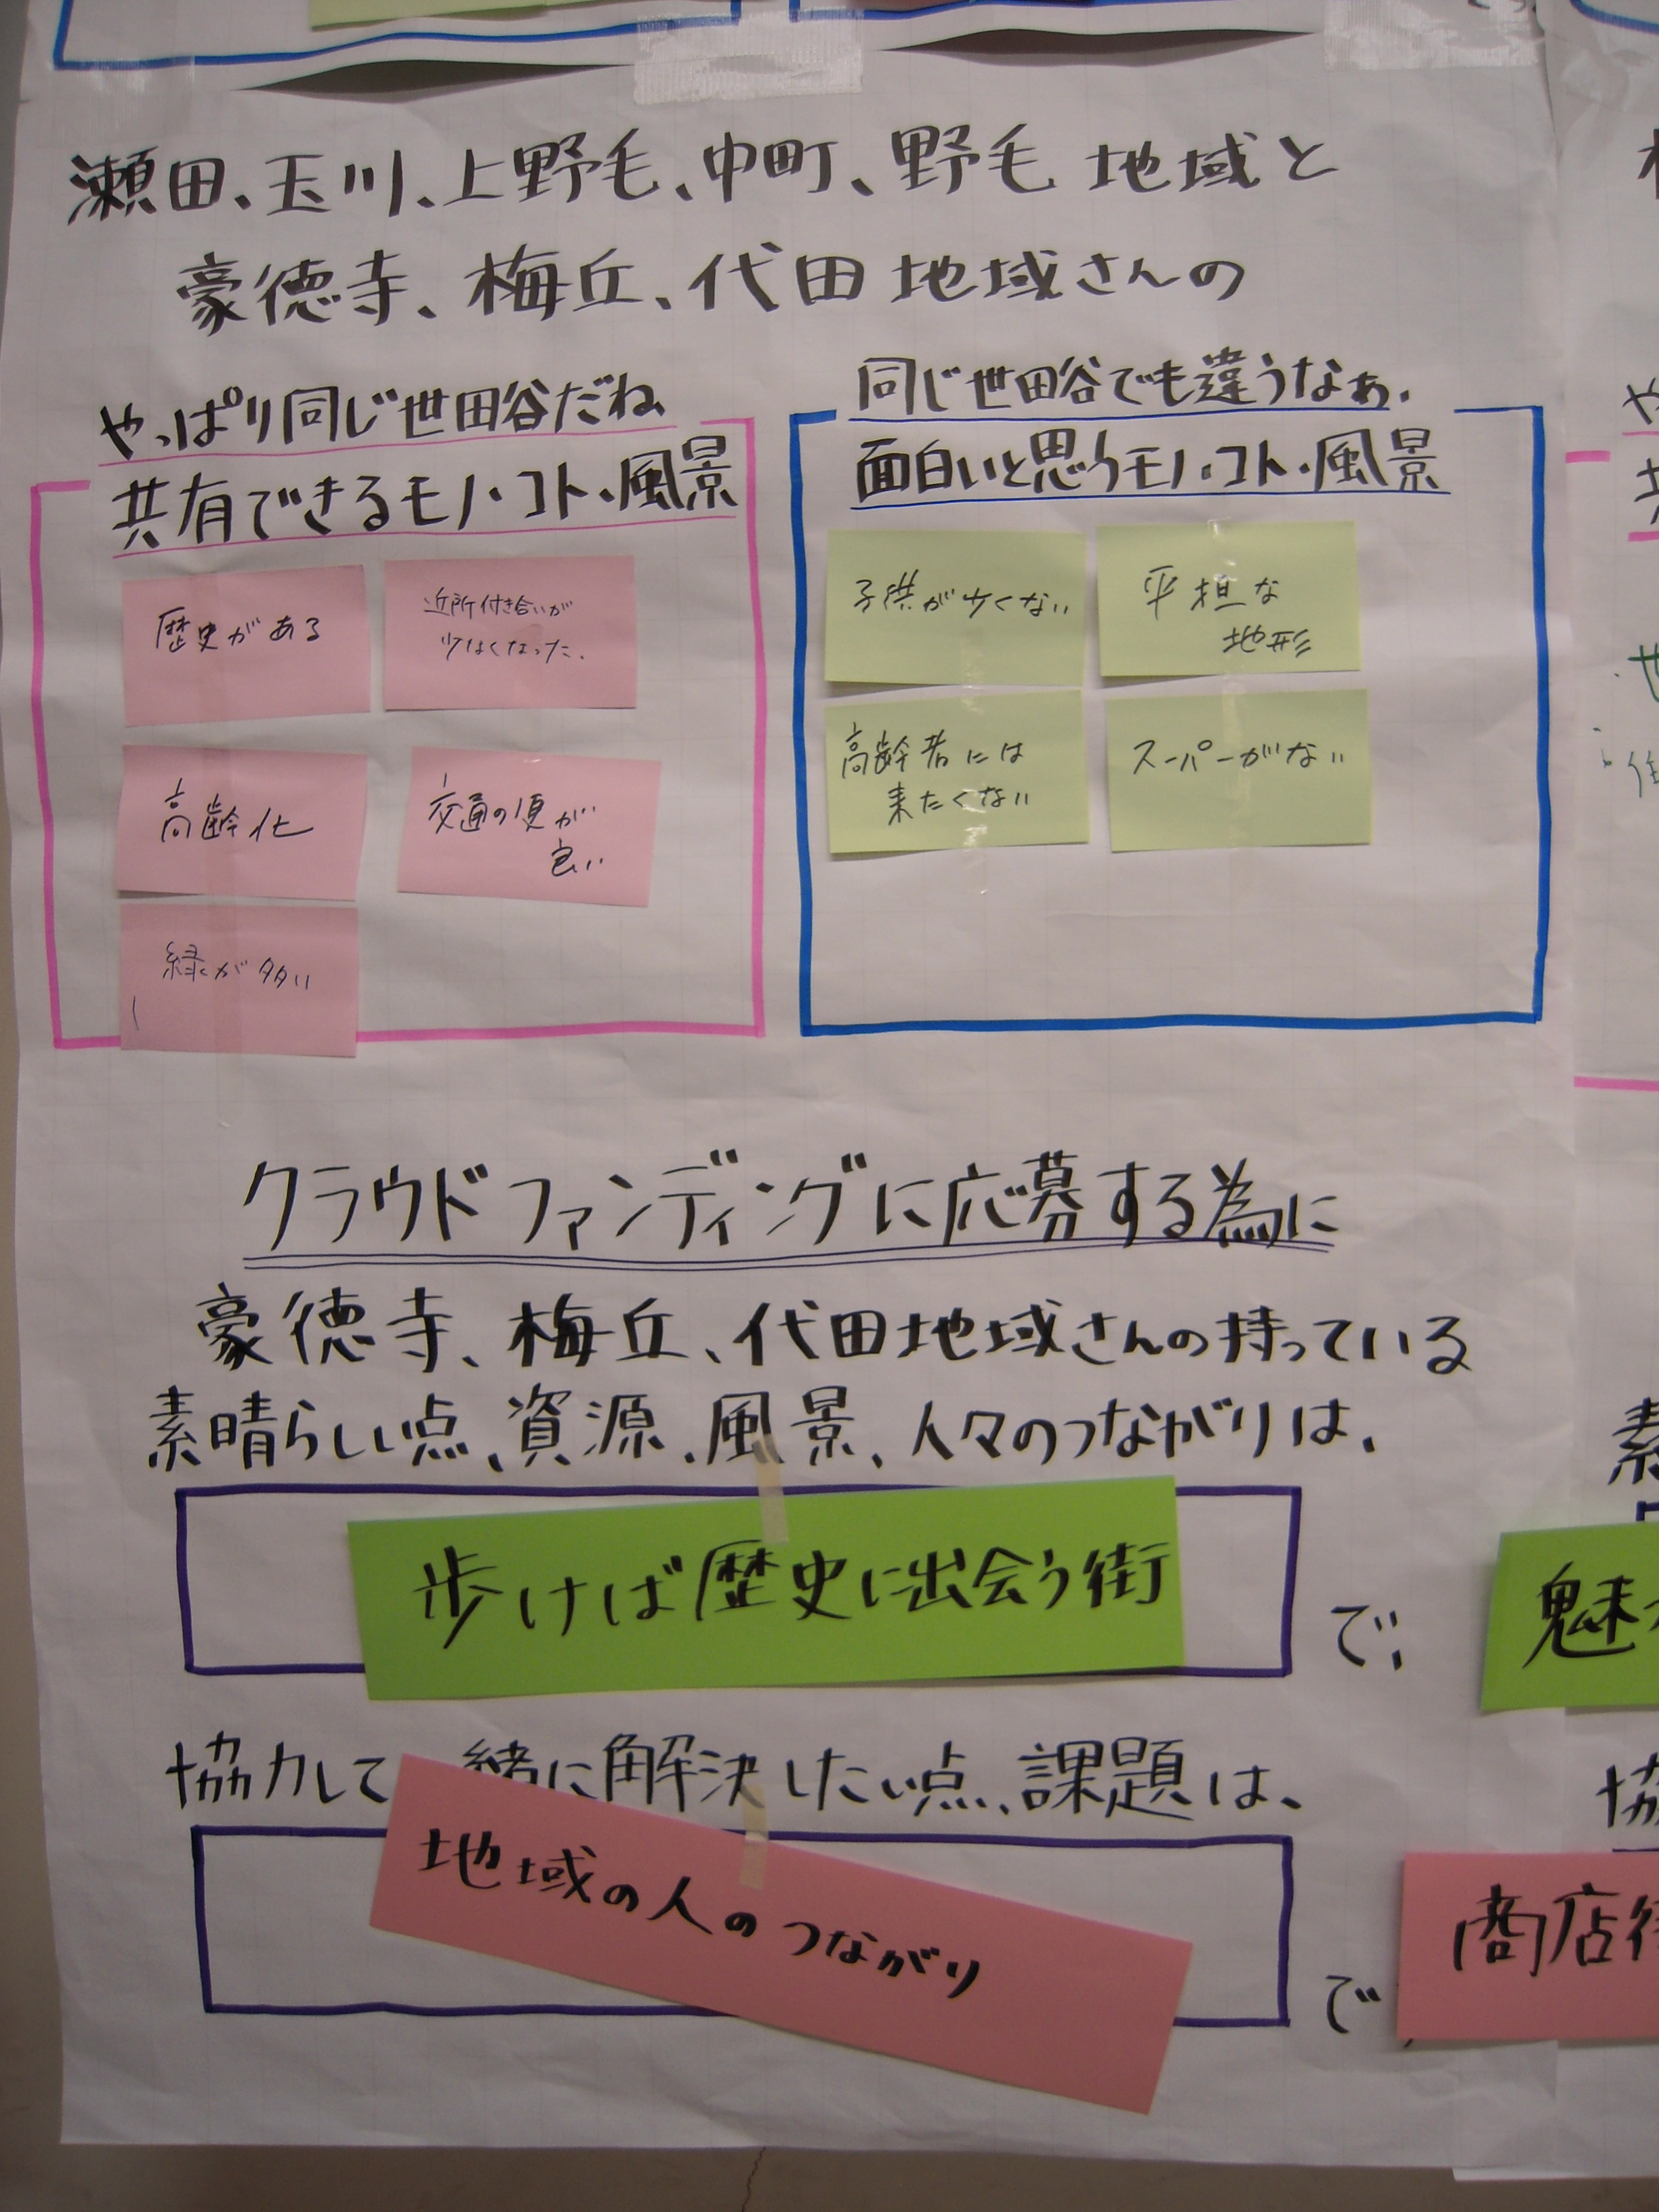 瀬田、玉川、上野毛、中町、野毛 地域と
豪徳寺、梅丘、代田 地域さんの
やっぱり同じ世田谷だね
共有できるモノ・コト・風景
歴史がある
近所付き合いが
少なくなった.
高齢化
交通の便が
良い
緑が多い
同じ世田谷でも違うなぁ.
面白いと思うモノ・コト・風景
子供が少くない
平坦な
地形
高齢者には
来たくない
スーパーがない
クラウドファンディングに応募する為に
豪徳寺、梅丘、代田地域さんの持っている
素晴らしい点、資源、風景、人々のつながりは、
歩けば歴史に出会う街
で、
協力して 緒に解決したい点、課題は、
地域の人のつながり
で、
素
魅
協
商店街